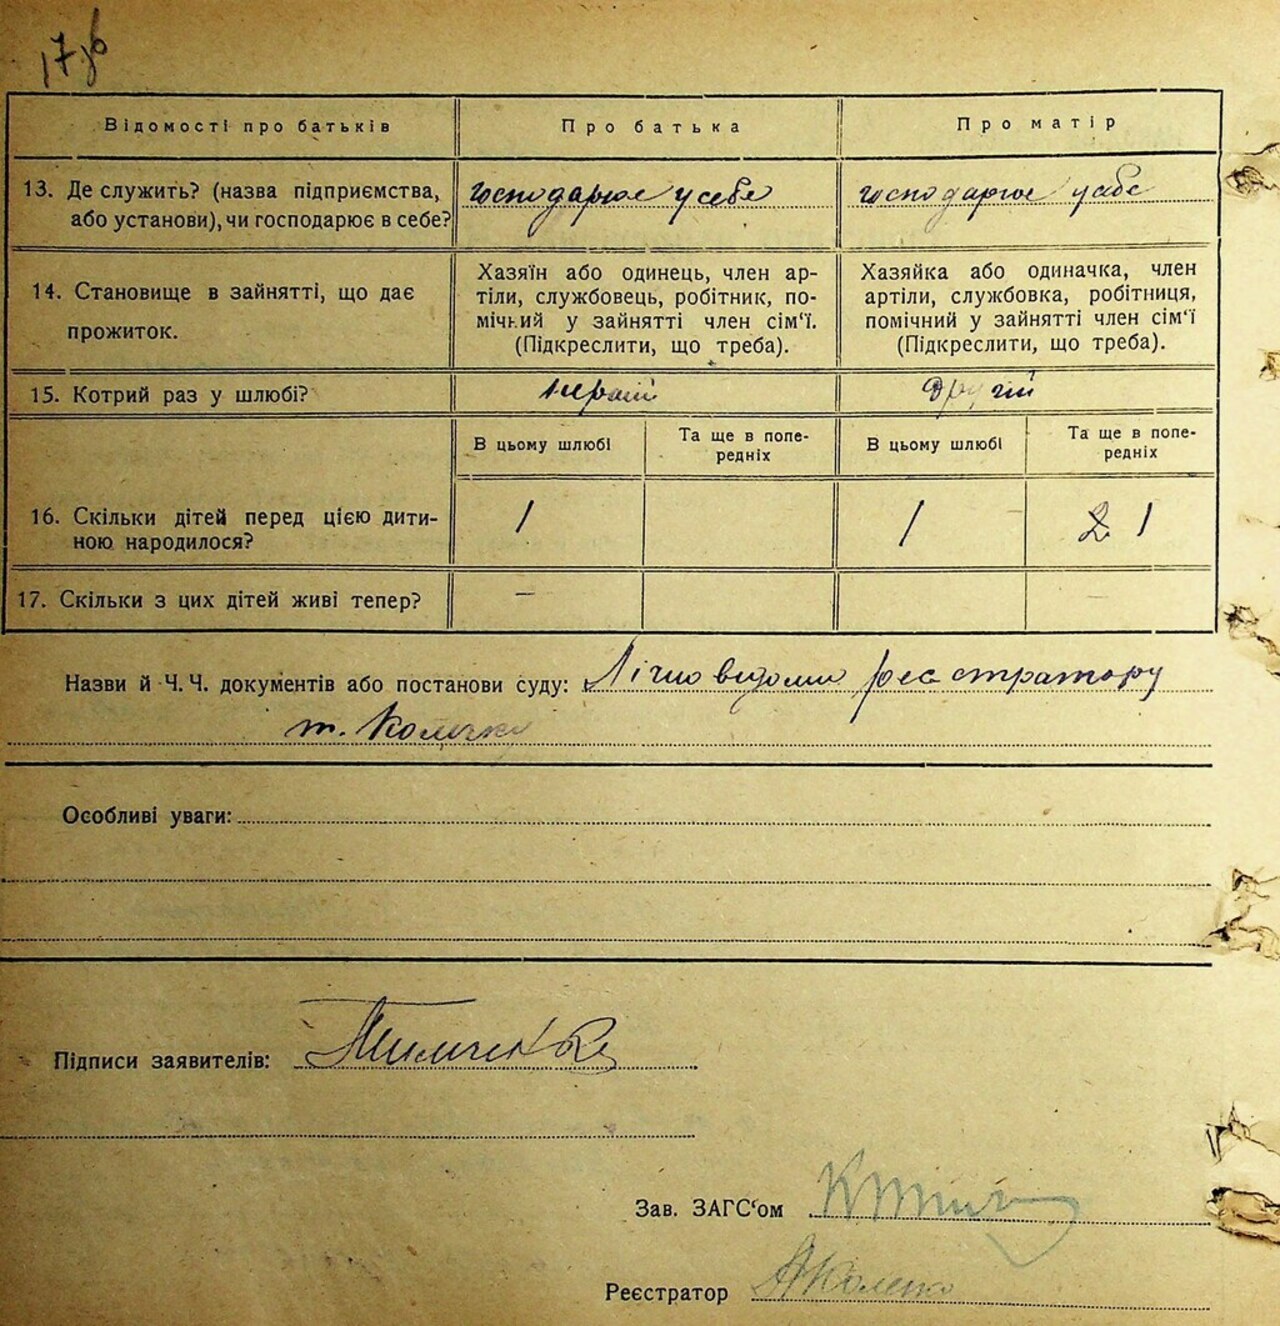 17зв
Відомості про батьків
Про батька
Про матір
13. Де служить? (назва підприємства, або установи), чи господарює в себе?
господарює у себе
господарює у себе
14. Становище в зайнятті, що дає прожиток.
Хазяїн або одинець, член ар-
тіли, службовець, робітник, по-
мічний у зайнятті член сім‘ї.
(Підкреслити, що треба).
Хазяйка або одиначка, член
артіли, службовка, робітниця,
помічний у зайнятті член сім‘ї
(Підкреслити, що треба).
15. Котрий раз у шлюбі?
перший
другий
В цьому шлюбі
Та ще в попе-
редніх
В цьому шлюбі
Та ще в попе-
редніх
16. Скільки дітей перед цією дити-
ною народилося?
1
1
2 1
17. Скільки з цих дітей живі тепер?
—
Назви й Ч. Ч. документів або постанови суду: Лічно ведомий реєстратору
т.
Особливі уваги:
Підписи заявителів:
Зав. ЗАГС‘ом
Реєстратор